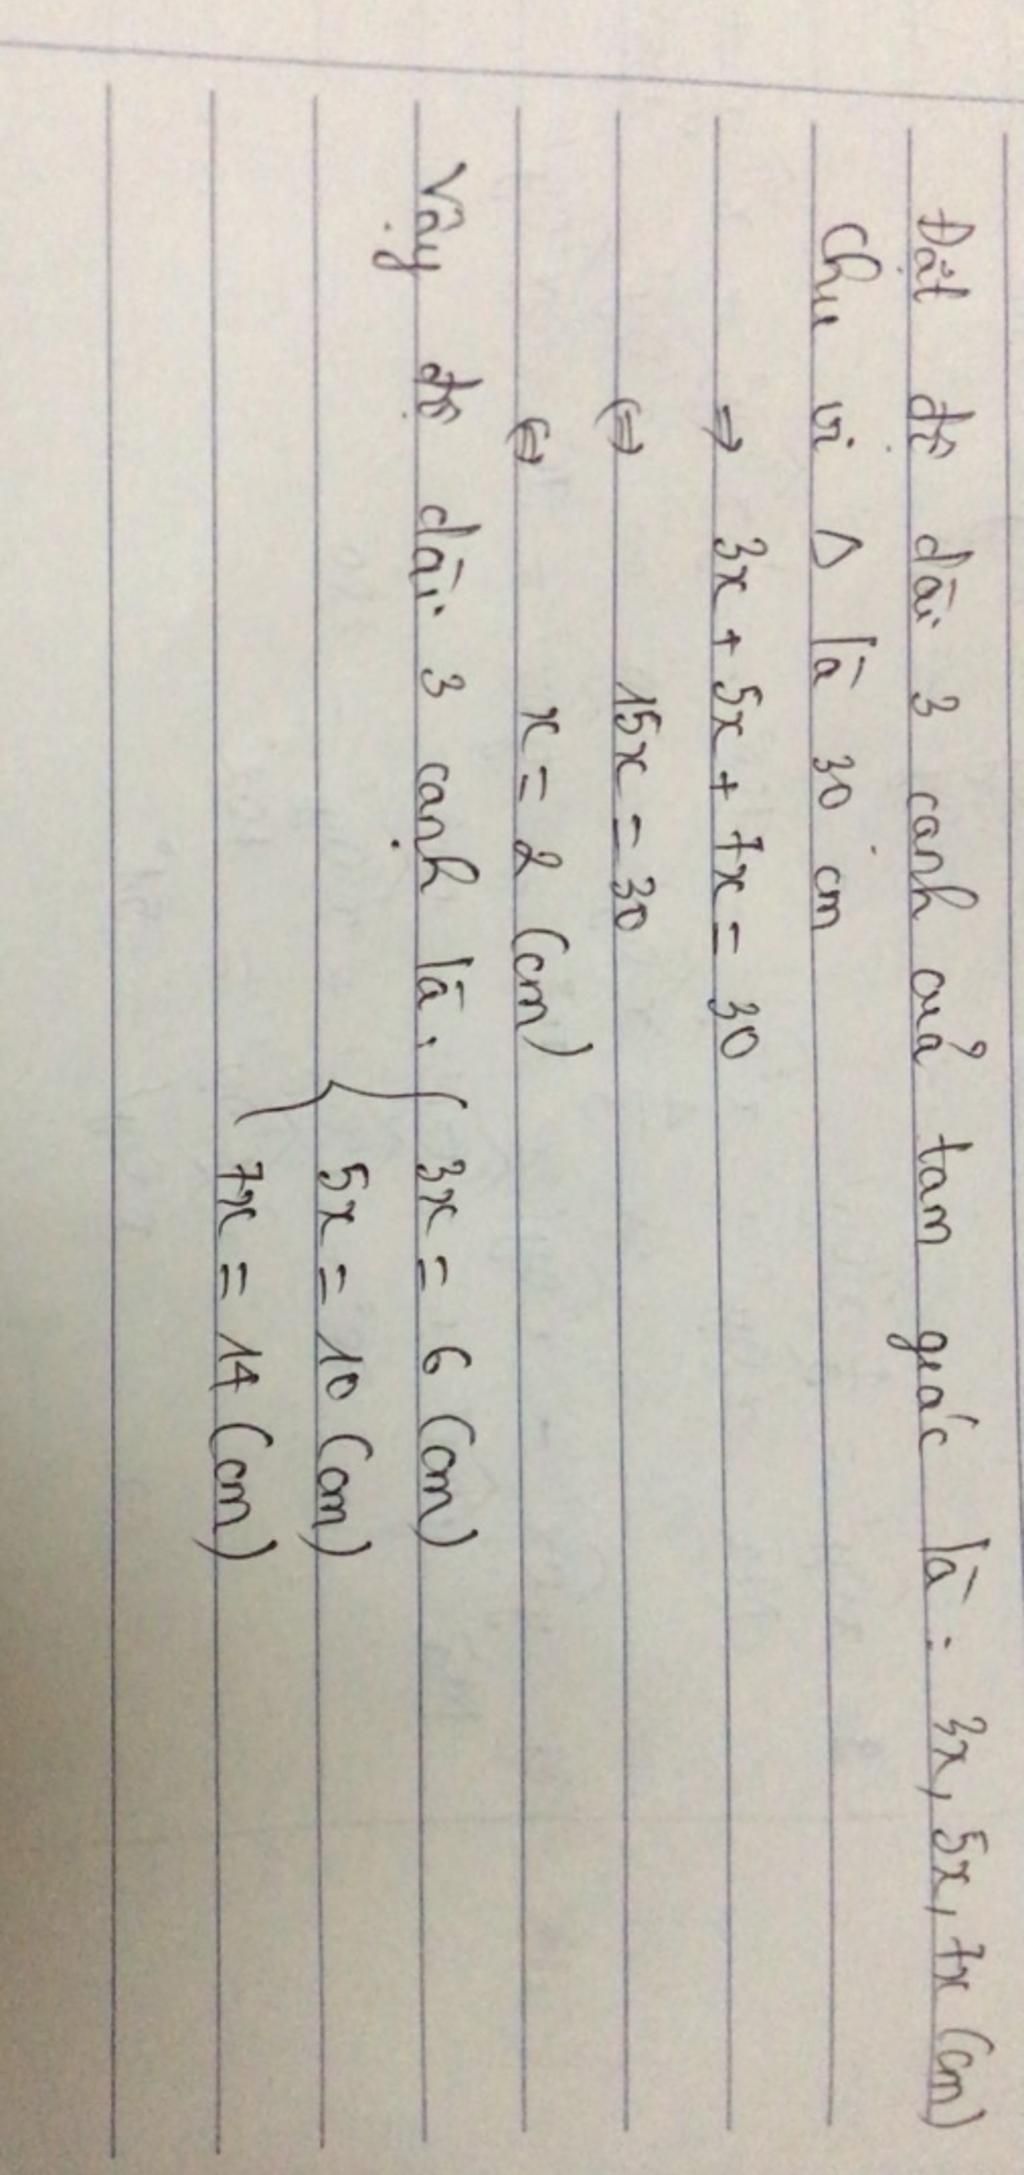 Đặt độ dài 3 cạnh của tam giác là: 3x, 5x, 7x (cm)
Chu vi Δ là 30 cm
⇒ 3x + 5x + 7x = 30
⇔ 15x = 30
⇔ x = 2 (cm)
Vậy độ dài 3 cạnh là: { 3x = 6 (cm)
5x = 10 (cm)
7x = 14 (cm)